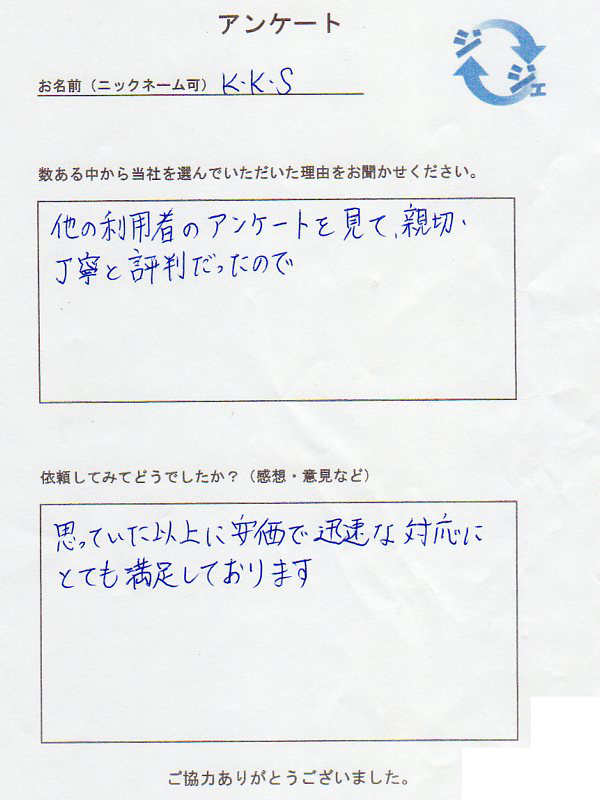 アンケート
ジジェ
お名前（ニックネーム可） K・K・S
数ある中から当社を選んでいただいた理由をお聞かせください。
他の利用者のアンケートを見て、親切・
丁寧と評判だったので
依頼してみてどうでしたか？（感想・意見など）
思っていた以上に安価で迅速な対応に
とても満足しております
ご協力ありがとうございました。